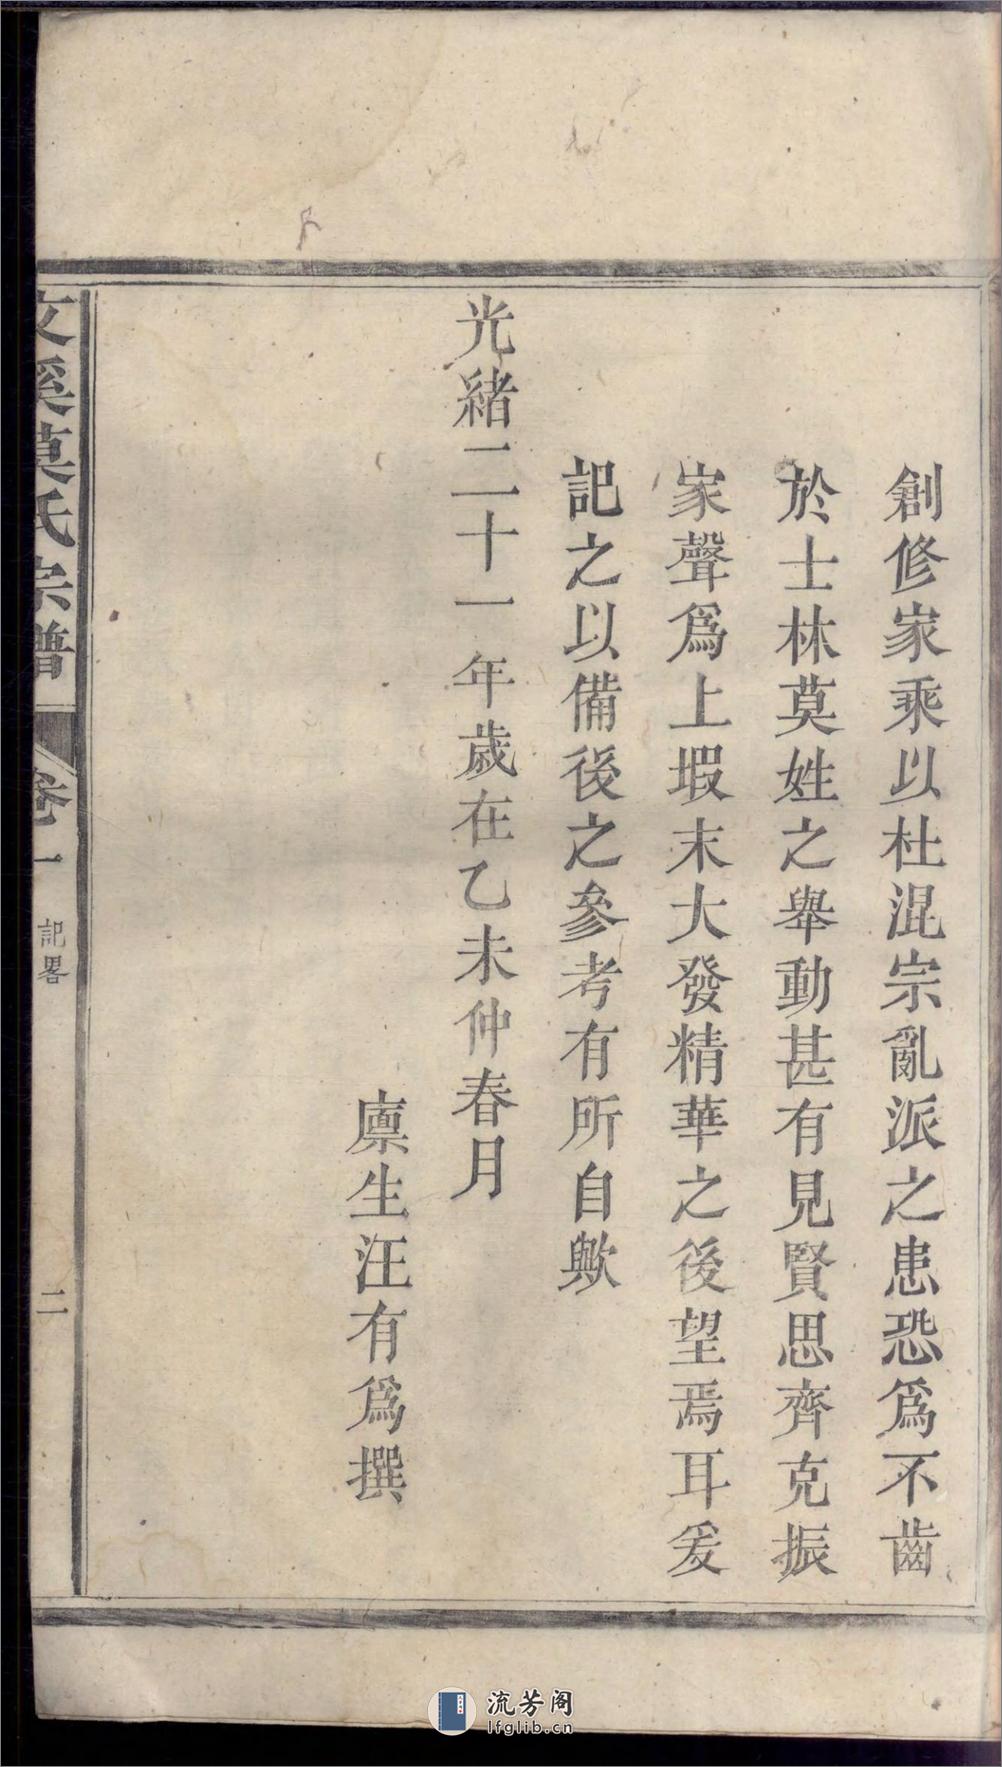 創修家乘以杜混宗亂派之患恐爲不齒
於士林莫姓之舉動甚有見賢思齊克振
家聲爲上塅末大發精華之後望焉耳爰
記之以備後之參考有所自歟
光緒二十一年歲在乙未仲春月
廪生汪有爲撰
文溪莫氏宗譜
卷一
記畧
二
流芳阁
lfglib.cn